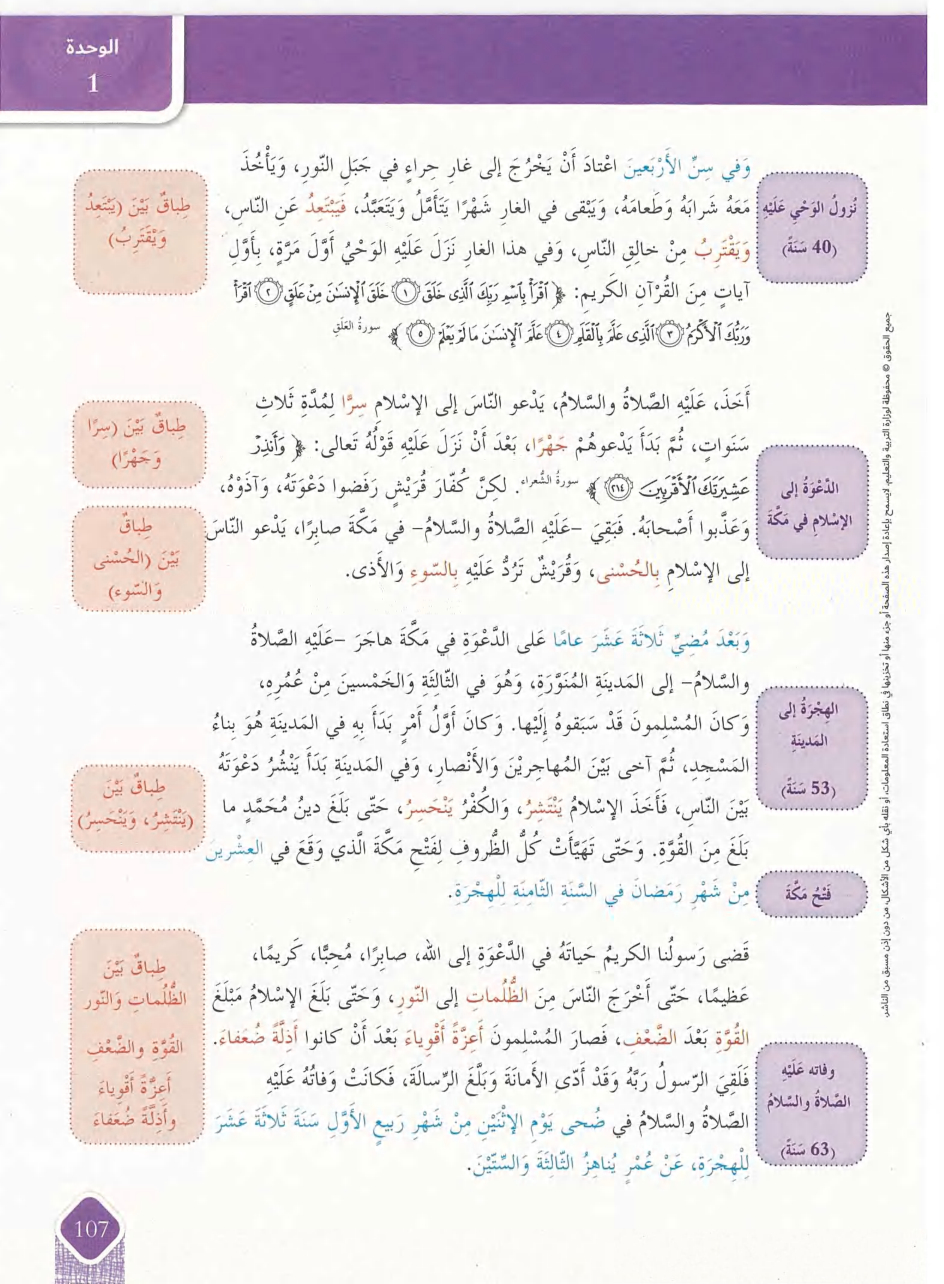 الوحدة
1
نُزولُ الوَحْيِ عَلَيْهِ
(40 سَنَةً)
وَفي سِنِّ الأَرْبَعينَ اعْتادَ أَنْ يَخْرُجَ إلى غارِ حِراءٍ في جَبَلِ النّورِ، وَيَأْخُذَ
مَعَهُ شَرابَهُ وَطَعامَهُ، وَيَبْقى في الغارِ شَهْرًا يَتَأَمَّلُ وَيَتَعَبَّدُ، فَيَبْتَعِدُ عَنِ النّاسِ،
وَيَقْتَرِبُ مِنْ خالِقِ النّاسِ، وَفي هذا الغارِ نَزَلَ عَلَيْهِ الوَحْيُ أَوَّلَ مَرَّةٍ، بِأَوَّلِ
آياتٍ مِنَ القُرْآنِ الكَريمِ: ﴿ ٱقْرَأْ بِٱسْمِ رَبِّكَ ٱلَّذِى خَلَقَ ۝١ خَلَقَ ٱلْإِنسَـٰنَ مِنْ عَلَقٍ ۝٢ ٱقْرَأْ
وَرَبُّكَ ٱلْأَكْرَمُ ۝٣ ٱلَّذِى عَلَّمَ بِٱلْقَلَمِ ۝٤ عَلَّمَ ٱلْإِنسَـٰنَ مَا لَمْ يَعْلَمْ ۝٥ ﴾ سورةُ العَلَقِ
طِباقٌ بَيْنَ (يَبْتَعِدُ
وَيَقْتَرِبُ)
الدَّعْوَةُ إلى
الإسْلامِ في مَكَّةَ
أَخَذَ، عَلَيْهِ الصَّلاةُ والسَّلامُ، يَدْعو النّاسَ إلى الإسْلامِ سِرًّا لِمُدَّةِ ثَلاثِ
سَنَواتٍ، ثُمَّ بَدَأَ يَدْعوهُمْ جَهْرًا، بَعْدَ أَنْ نَزَلَ عَلَيْهِ قَوْلُهُ تَعالى: ﴿ وَأَنذِرْ
عَشِيرَتَكَ ٱلْأَقْرَبِينَ ۝٢١٤ ﴾ سورةُ الشُّعراء. لكِنَّ كُفّارَ قُرَيْشٍ رَفَضوا دَعْوَتَهُ، وَآذَوْهُ،
وَعَذَّبوا أَصْحابَهُ. فَبَقِيَ –عَلَيْهِ الصَّلاةُ والسَّلامُ– في مَكَّةَ صابِرًا، يَدْعو النّاسَ
إلى الإسْلامِ بِالحُسْنى، وَقُرَيْشٌ تَرُدُّ عَلَيْهِ بِالسّوءِ وَالأَذى.
طِباقٌ بَيْنَ (سِرًّا
وَجَهْرًا)
طِباقٌ
بَيْنَ (الحُسْنى
وَالسّوء)
الهِجْرَةُ إلى
المَدينَةِ
(53 سَنَةً)
وَبَعْدَ مُضِيِّ ثَلاثَةَ عَشَرَ عامًا عَلى الدَّعْوَةِ في مَكَّةَ هاجَرَ –عَلَيْهِ الصَّلاةُ
والسَّلامُ– إلى المَدينَةِ المُنَوَّرَةِ، وَهُوَ في الثّالِثَةِ وَالخَمْسينَ مِنْ عُمُرِهِ،
وَكانَ المُسْلِمونَ قَدْ سَبَقوهُ إِلَيْها. وَكانَ أَوَّلُ أَمْرٍ بَدَأَ بِهِ في المَدينَةِ هُوَ بِناءُ
المَسْجِدِ، ثُمَّ آخى بَيْنَ المُهاجِرِيْنَ وَالأَنْصارِ، وَفي المَدينَةِ بَدَأَ يَنْشُرُ دَعْوَتَهُ
بَيْنَ النّاسِ، فَأَخَذَ الإسْلامُ يَنْتَشِرُ، وَالكُفْرُ يَنْحَسِرُ، حَتّى بَلَغَ دينُ مُحَمَّدٍ ما
بَلَغَ مِنَ القُوَّةِ. وَحَتّى تَهَيَّأَتْ كُلُّ الظُّروفِ لِفَتْحِ مَكَّةَ الَّذي وَقَعَ في العِشْرينَ
مِنْ شَهْرِ رَمَضانَ في السَّنَةِ الثّامِنَةِ لِلْهِجْرَةِ.
طِباقٌ بَيْنَ
(يَنْتَشِرُ، وَيَنْحَسِرُ)
فَتْحُ مَكَّةَ
قَضى رَسولُنا الكريمُ حَياتَهُ في الدَّعْوَةِ إلى الله، صابِرًا، مُحِبًّا، كَريمًا،
عَظيمًا، حَتّى أَخْرَجَ النّاسَ مِنَ الظُّلُماتِ إلى النّورِ، وَحَتّى بَلَغَ الإسْلامُ مَبْلَغَ
القُوَّةِ بَعْدَ الضَّعْفِ، فَصارَ المُسْلِمونَ أَعِزَّةً أَقْوِياءَ بَعْدَ أَنْ كانوا أَذِلَّةً ضُعَفاءَ.
فَلَقِيَ الرّسولُ رَبَّهُ وَقَدْ أَدّى الأَمانَةَ وَبَلَّغَ الرِّسالَةَ، فَكانَتْ وَفاتُهُ عَلَيْهِ
الصَّلاةُ والسَّلامُ في ضُحى يَوْمِ الإِثْنَيْنِ مِنْ شَهْرِ رَبيعٍ الأَوَّلِ سَنَةَ ثَلاثَةَ عَشَرَ
لِلْهِجْرَةِ، عَنْ عُمْرٍ يُناهِزُ الثّالِثَةَ وَالسِّتّيْنَ.
وفاته عَلَيْهِ
الصَّلاةُ والسَّلامُ
(63 سَنَةً)
طِباقٌ بَيْنَ
الظُّلُماتِ وَالنّور
القُوَّةِ والضَّعْفِ
أَعِزَّةً أَقْوِياءَ
وأَذِلَّةً ضُعَفاءَ
جميع الحقوق © محفوظة لوزارة التربية والتعليم. لايسمح بإعادة إصدار هذه الصفحة أو جزء منها أو تخزينها في نطاق استعادة المعلومات، أو نقله بأي شكل من الأشكال، من دون إذن مسبق من الناشر.
107